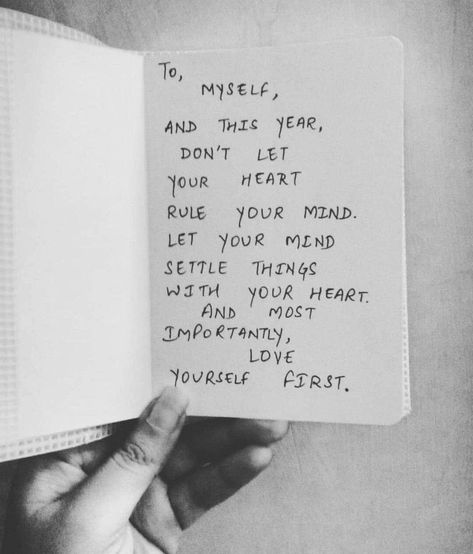 To,
MYSELF,
AND THIS YEAR,
DON'T LET
YOUR HEART
RULE YOUR MIND.
LET YOUR MIND
SETTLE THINGS
WITH YOUR HEART.
AND MOST
IMPORTANTLY,
LOVE
YOURSELF FIRST.